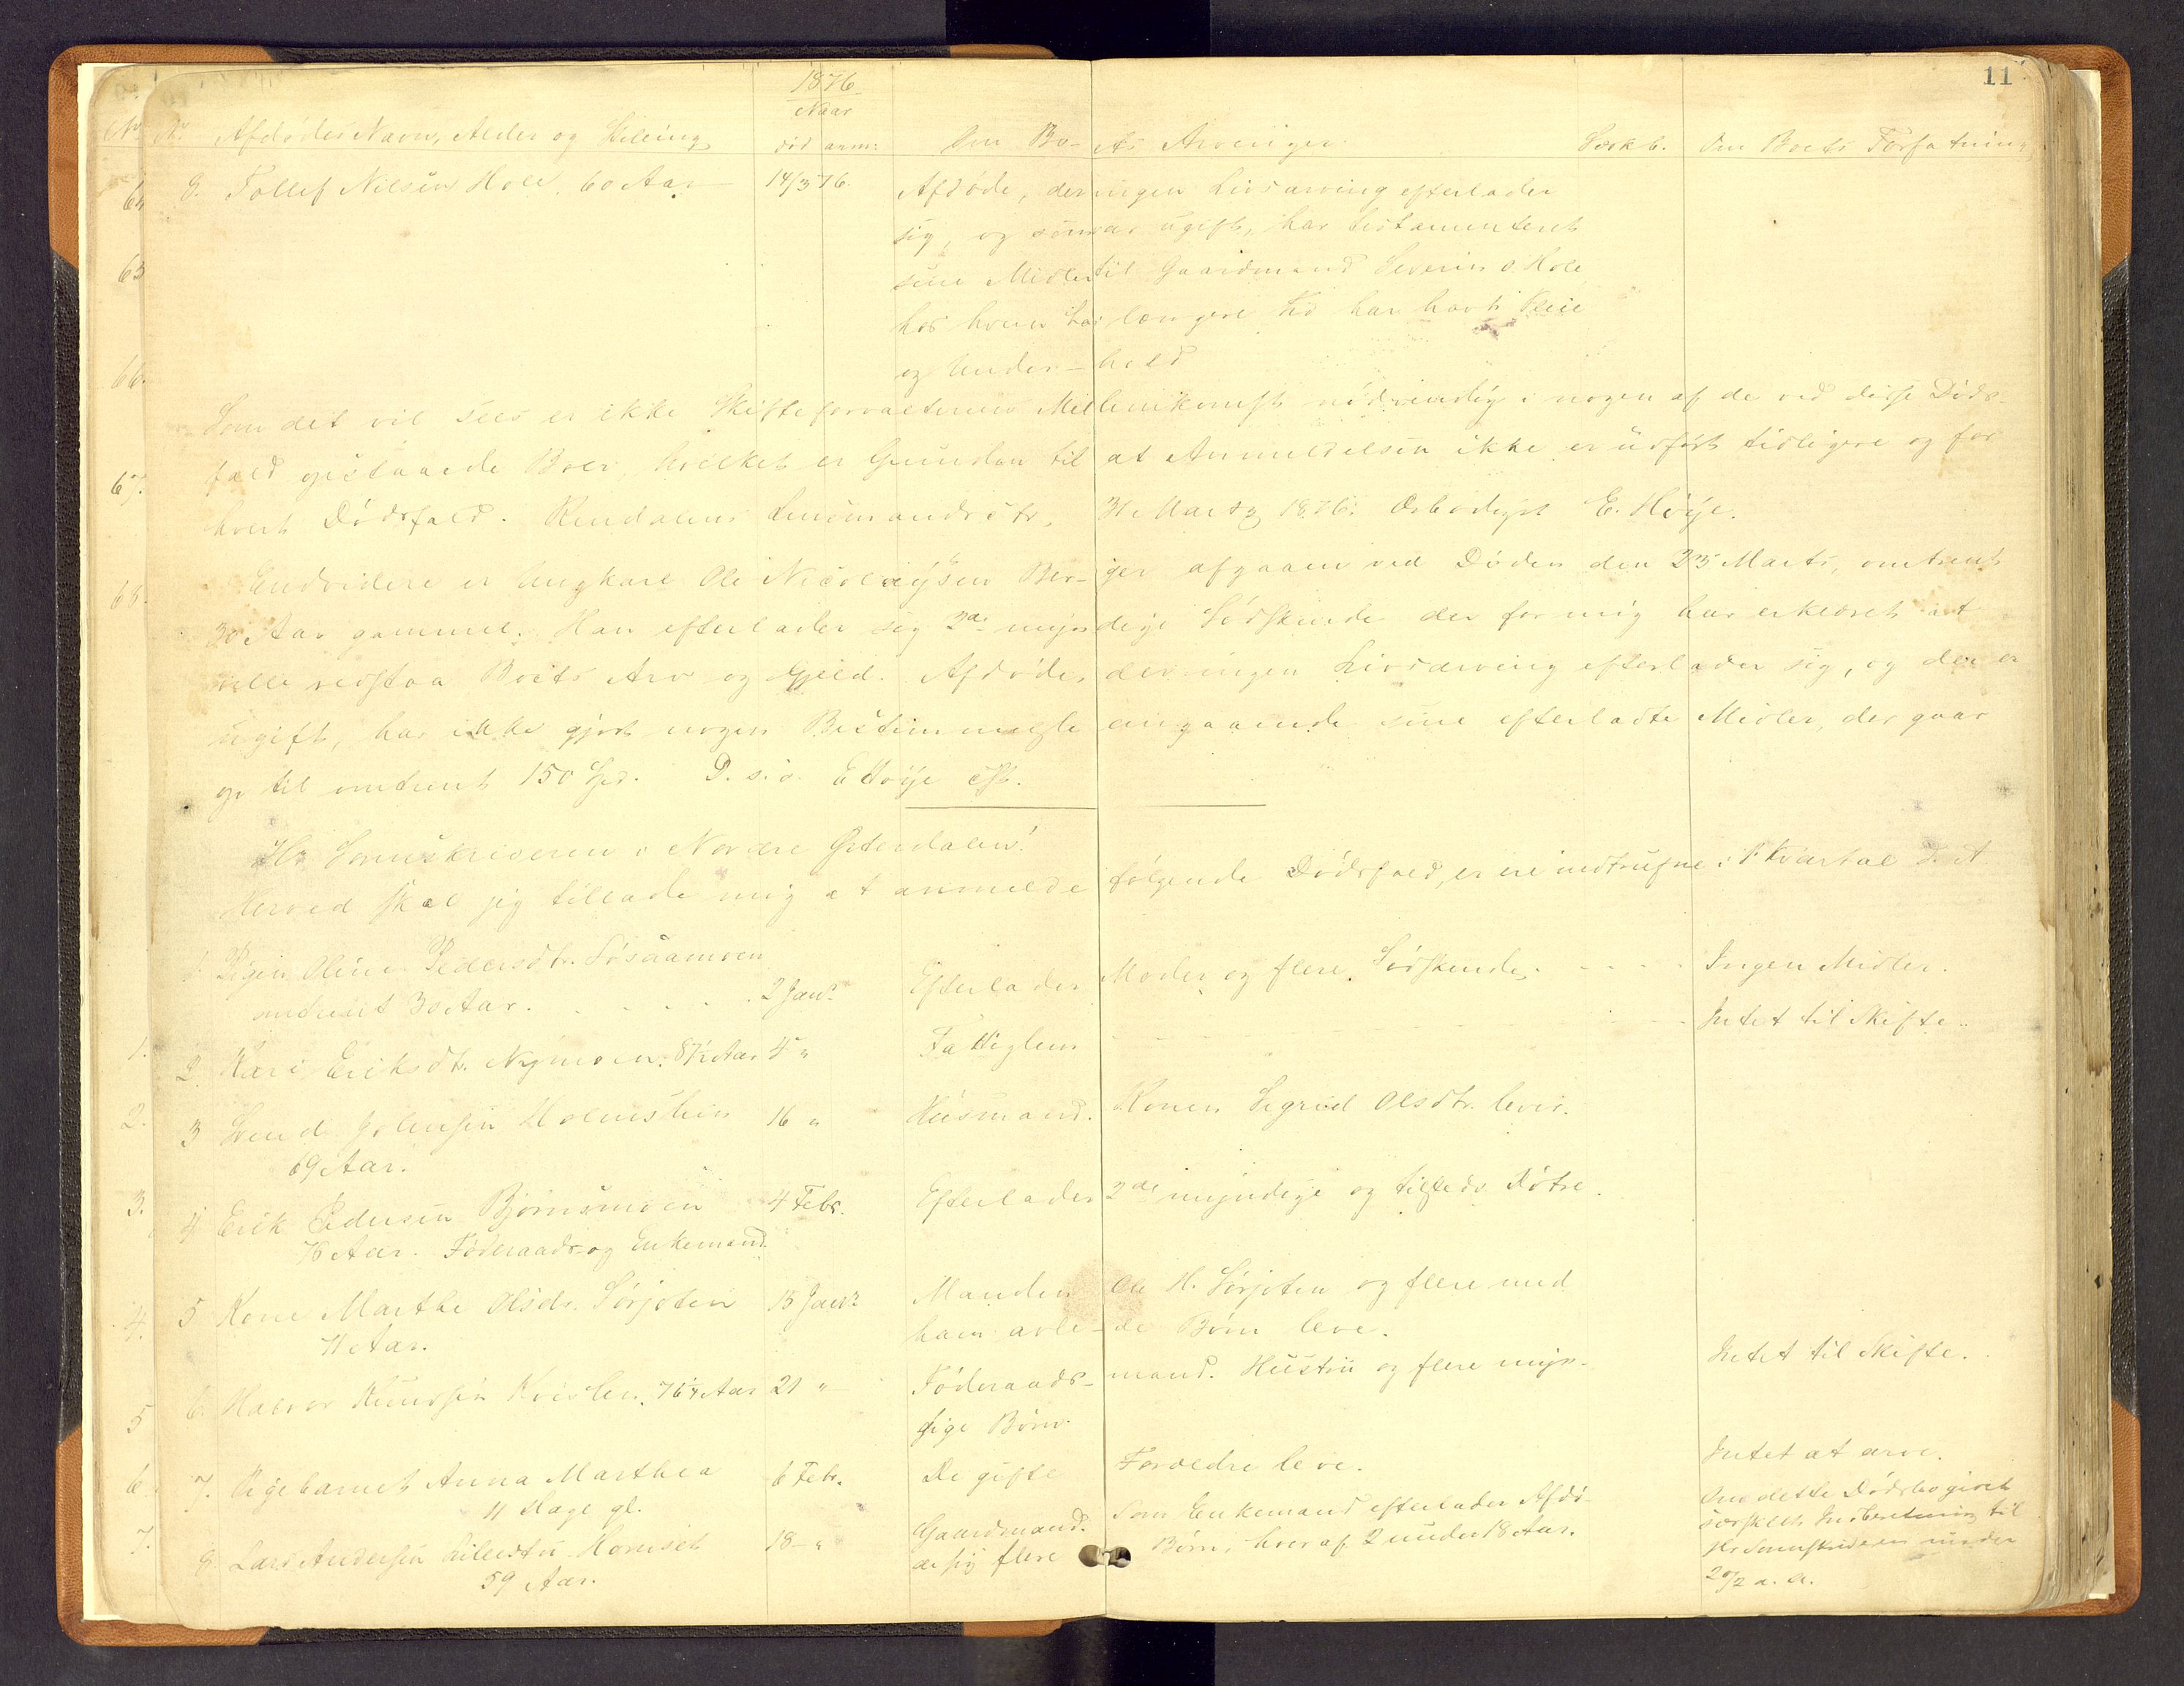 11
1876
Naar
Nr Afdødes Navn, Alder og Stilling død anm: Om Boets Arvinger Om Boets Forfatning
8. Tollef Nilsen Hole, 60 Aar 14/3 76. Afdøde, der ingen Livsarving efterlader
sig, og som var ugift, har testamenteret
sine Midler til Gaardmand Severin O. Hole
hos hvem han længere Tid har havt Pleie
og Underhold
Som det vil sees er ikke Skifteforvalterens Mellemkomst nødvendig i nogen af de ved disse Døds-
fald opstaaede Boer, hvilket er Grunden til at Anmeldelsen ikke er indført tidligere og for
hvert Dødsfald. Rendalens Lensmandsctr. 31 Marts 1876. Ærbødigst E. Høye.
Endvidere er Ungkarl Ole Nicolaysen Berger afgaaen ved Døden den 23 Marts, omtrent
30 Aar gammel. Han efterlader sig 3de myndige Sødskende der for mig har erklæret at
ville vedstaa Boets Arv og Gjeld. Afdøde, der ingen Livsarving efterlader sig, og der er
ugift, har ikke gjort nogen Bestemmelse angaaende sine efterladte Midler, der gaar
op til omtrent 150 Spd. D. s. s. E Høye
Hr Sorenskriveren i Nordre Østerdalen!
Herved skal jeg tillade mig at anmelde følgende Dødsfald, er indtrufne i 1ste Kvartal d. A
1. Pigen Oline Pedersdtr.
omtrent 30 Aar. 2 Janr. Efterlader Moder og flere Sødskende. Ingen Midler.
2. Kari Eriksdtr. Nymoen. 87½ Aar 4 " Fattiglem Intet til Skifte.
3 Svend Johnsen Holmstein 16 " Husmand. Konen Sigrid Olsdtr. lever.
69 Aar.
4 Erik Pedersen Bjørnsmoen 4 Febr. Efterlader 2de myndige og tilstede Døtre.
76 Aar. Føderaads- og Enkemand.
5 Kone Marthe Olsdr. Sørjoten 15 Janr. Manden Ole H. Sørjoten og flere med
71 Aar. ham avlede Børn leve.
6. Halvor Knudsen Kvislen. 76¼ Aar 21 " Føderaadsmand. Hustru og flere myn- Intet til Skifte.
dige Børn.
7. Pigebarnet Anna Marthea 6 Febr. De gifte Forældre leve. Intet at arve.
11 Dage gl.
8. Lars Andersen Lillestu Hornset 18 " Gaardmand. Som Enkemand efterlader Afdø- Om dette Dødsbo givet
59 Aar. de sig flere Børn, hvoraf 2 under 18 Aar. særskilt Indberetning til
Hr Sorenskriveren under
20/2 d. A.
64
65
66.
67.
68.
1.
2.
3.
4.
5
6.
7.